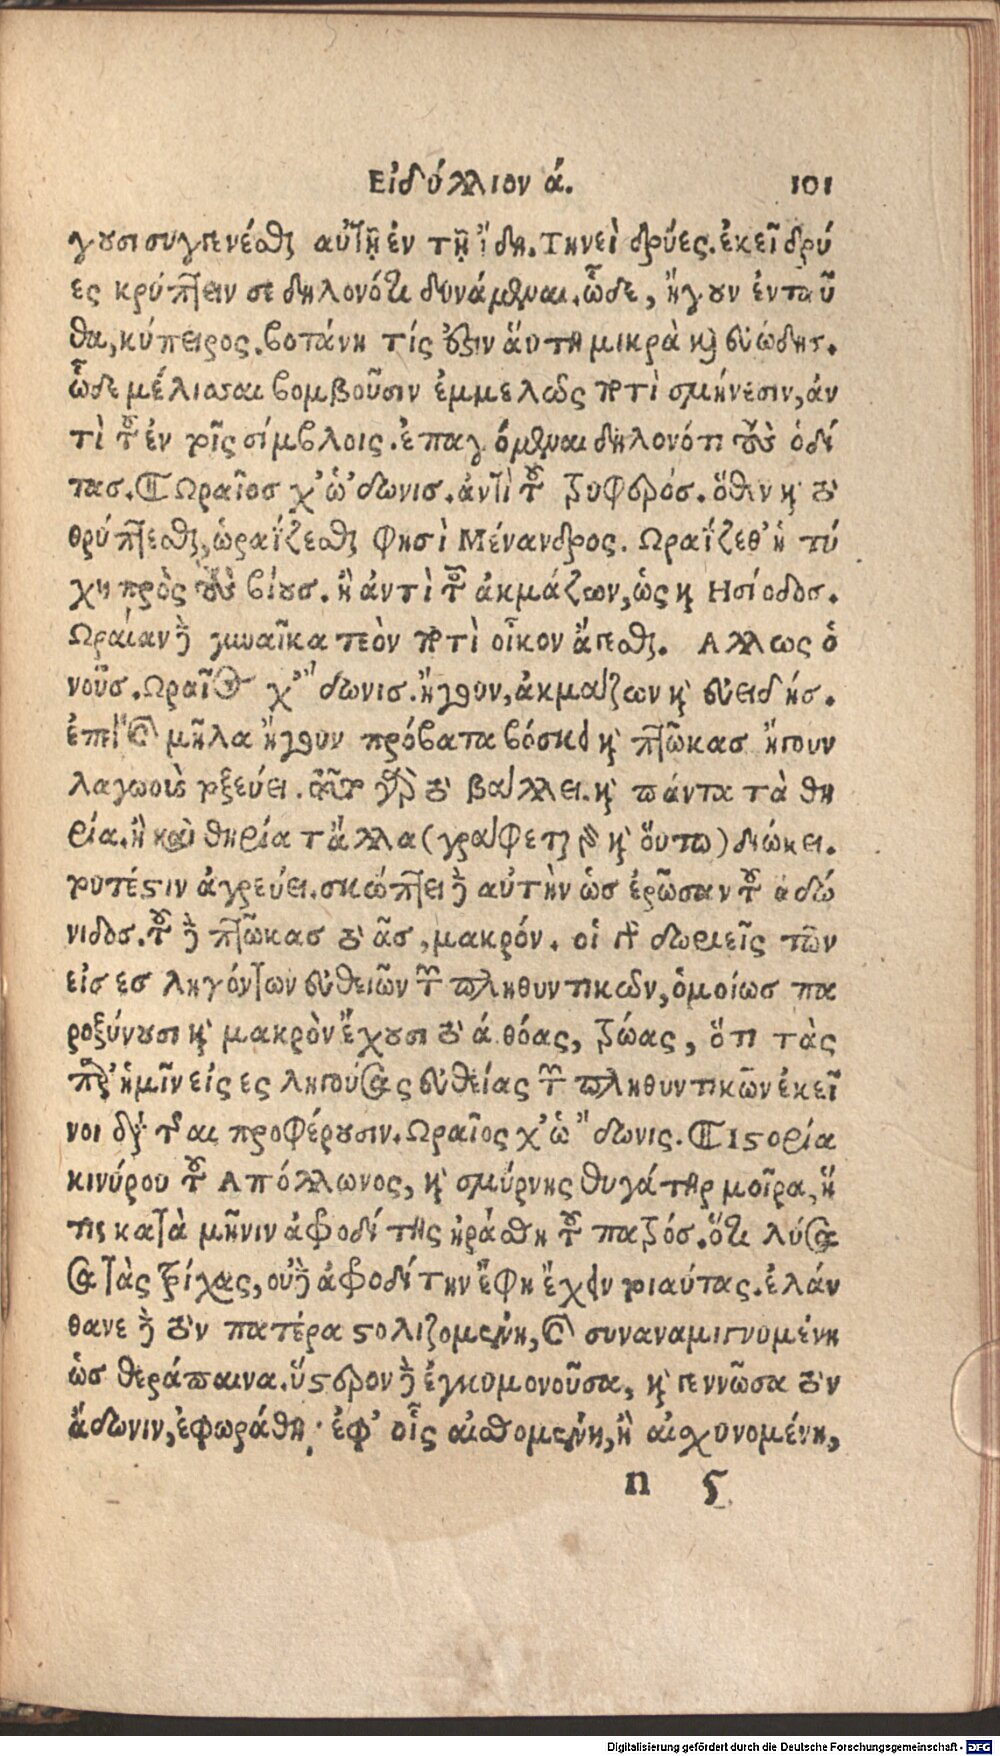 Εἰδύλλιον ά. 101
γουσι συγγενέσθαι αὐτῇ ἐν τῇ ἴδῃ. Τηνεὶ δρύες. ἐκεῖ δρύ
ες κρύπτειν σε δηλονότι δυνάμεναι. ὧδε, ἤγουν ἐνταῦ
θα, κύπειρος. βοτάνη τίς ἐστιν ἅυτη μικρὰ καὶ εὐώδης.
ὧδε μέλισσαι βομβοῦσιν ἐμμελῶς ποτὶ σμήνεσιν, ἀν
τὶ τοῦ ἐν τοῖς σίμβλοις. ἐπαγόμεναι δηλονότι τοὺς ὁδί
τας. Ωραῖος χ' ὡ' δωνις. ἀντὶ τοῦ τρυφερός. ὅθεν καὶ τὸ
θρύπτεσθαι, ὡραΐζεσθαι φησὶ Μένανδρος. Ωραΐζεθ' ἡ τύ
χη πρὸς τοὺς βίους. ἢ ἀντὶ τοῦ ἀκμάζων, ὡς καὶ Ησίοδος.
Ωραίαν δὲ γυναῖκα τεὸν ποτὶ οἶκον ἄγεσθαι. Αλλως ὁ
νοῦς. Ωραῖος χ' ὤ δωνις. ἤγουν, ἀκμάζων καὶ εὐειδής.
ἐπεὶ καὶ μῆλα ἤγουν πρόβατα βόσκει καὶ πτῶκας ἤγουν
λαγωοὺς τοξεύει. παρὰ γὰρ τὸ βάλλει. καὶ πάντα τὰ θη
ρία. ἢ καὶ θηρία τἄλλα (γράφεται γὰρ καὶ ὅυτω) διώκει.
τουτέστιν ἀγρεύει. σκώπτει δὲ αὐτὴν ὡς ἐρῶσαν τοῦ ἀδώ
νιδος. τοῦ δὲ πτῶκας τὸ ᾶς, μακρόν. οἱ γὰρ δωριεῖς τῶν
εἰς ες ληγόντων εὐθειῶν τῶν πληθυντικῶν, ὁμοίως πα
ροξύνουσι καὶ μακρὸν ἔχουσι τὸ ά θόας, τρώας, ὅτι τὰς
παρ' ἡμῖν εἰς ες ληγούσας εὐθείας τῶν πληθυντικῶν ἐκεῖ
νοι διὰ τῆς αι προφέρουσιν. Ωραῖος χ' ὡ ἄ δωνις. Ιστορία
κινύρου τοῦ Απόλλωνος, καὶ σμύρνης θυγάτηρ μοῖρα, ἥ
τις κατὰ μῆνιν ἀφροδίτης ἠράσθη τοῦ πατρός. ὅτι λύσα
σα τὰς τρίχας, οὐδὲ ἀφροδίτην ἔφη ἔχειν τοιαύτας. ἐλάν
θανε δὲ τὸν πατέρα στολιζομένη, καὶ συναναμιγνυμένη
ὡς θεράπαινα. ὕστερον δὲ ἐγκυμονοῦσα, καὶ γεννῶσα τὸν
ἄδωνιν, ἐφωράθη· ἐφ' οἷς αἰσθομένη, ἢ αἰσχυνομένη,
n ς
Digitalisierung gefördert durch die Deutsche Forschungsgemeinschaft - DFG